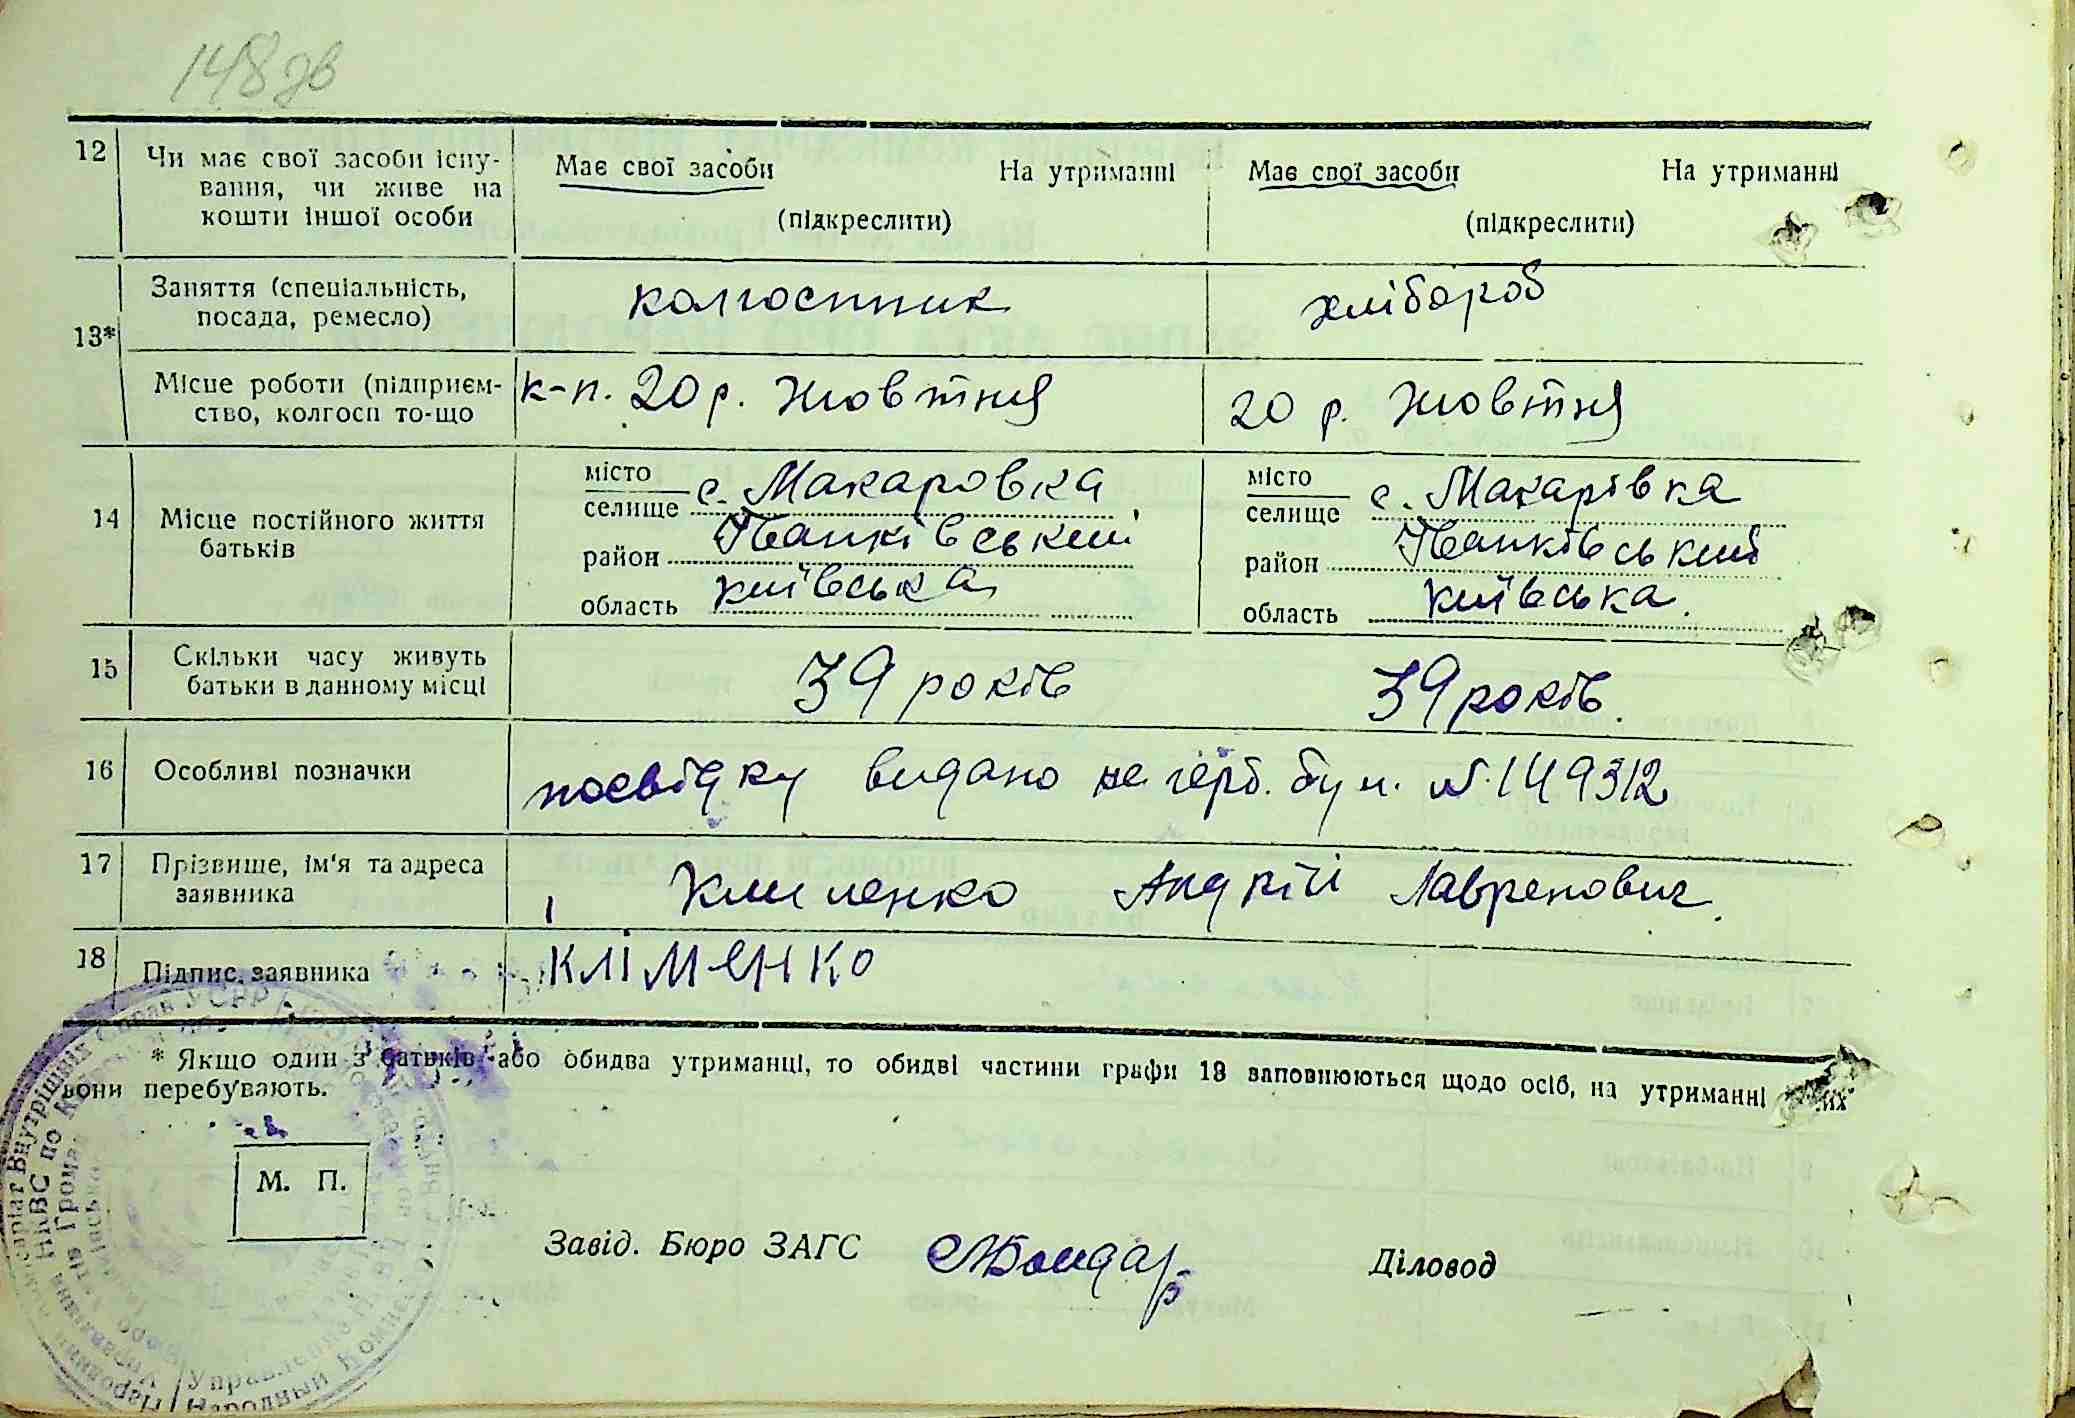 148 зв
12 Чи має свої засоби існу-
вання, чи живе на
кошти іншої особи
Має свої засоби На утриманні
(підкреслити)
Має свої засоби На утриманні
(підкреслити)
13* Заняття (спеціальність,
посада, ремесло)
колгоспник
хлібороб
Місце роботи (підприєм-
ство, колгосп то-що
к-п. 20 р. Жовтня
20 р. Жовтня
14 Місце постійного життя
батьків
місто
селище с. Макаровка
район Іванківський
область київська
місто
селище с. Макарівка
район Іванківський
область київська.
15 Скільки часу живуть
батьки в данному місці
39 років
39 років.
16 Особливі позначки
посвідку видано на герб. бум. N. 149312
17 Прізвище, ім'я та адреса
заявника
Клименко Андрій Лавренович.
18 Підпис заявника
КЛІМЕНКО
* Якщо один з батьків або обидва утриманці, то обидві частини графи 13 заповнюються щодо осіб, на утриманні яких
вони перебувають.
М. П.
Завід. Бюро ЗАГС Бондар Діловод